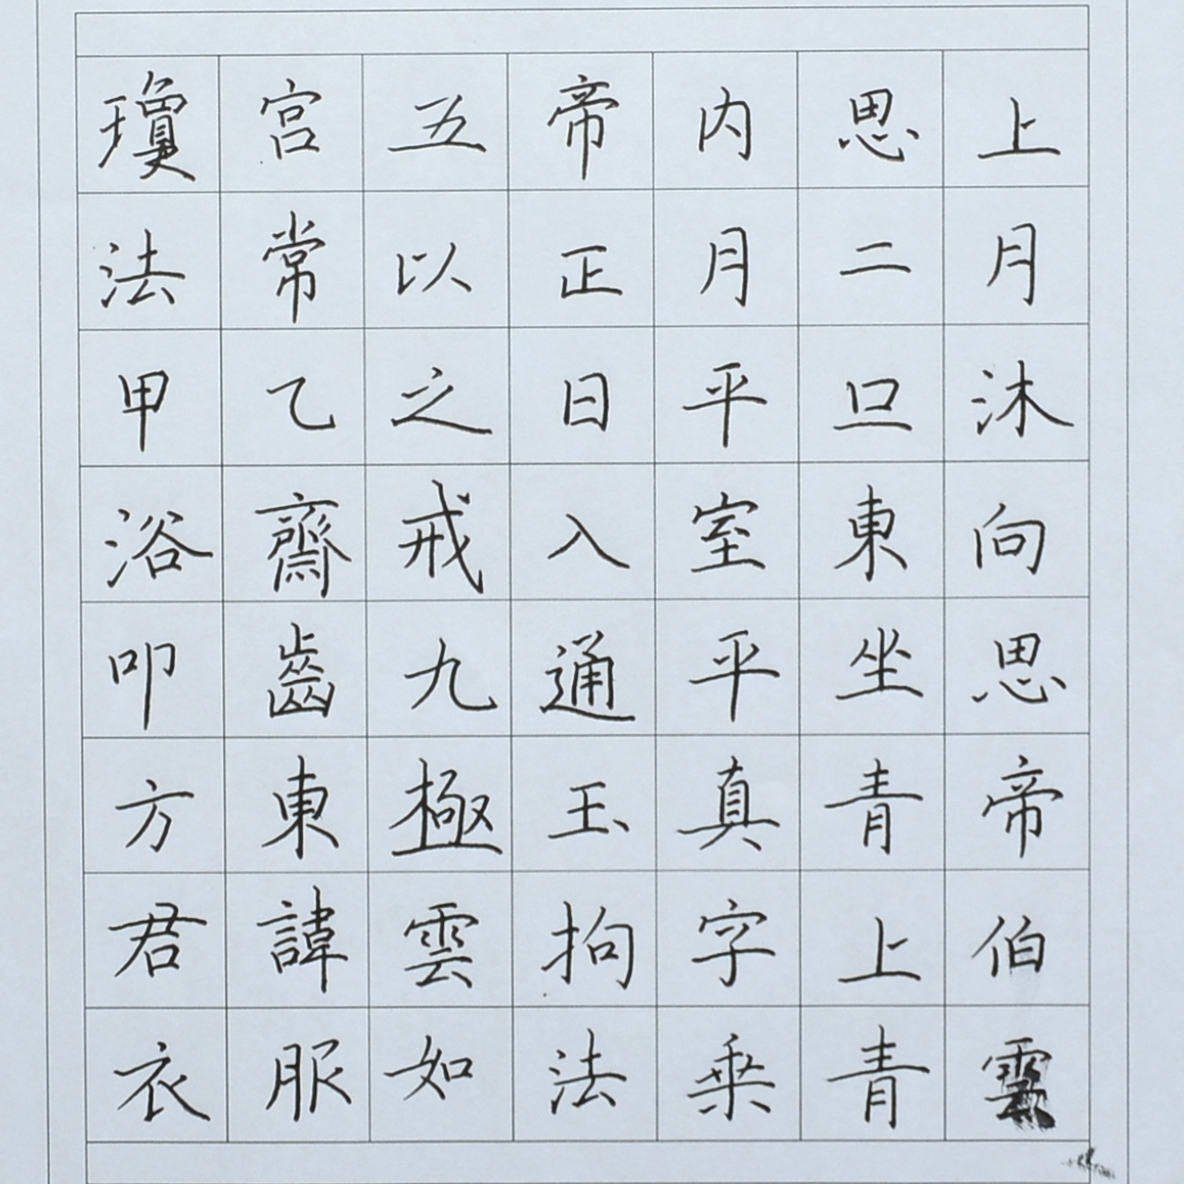 瓊宮五帝内思上
法常以正月二月
甲乙之日平旦沐
浴齋戒入室東向
叩齒九通平坐思
方東極玉真青帝
君諱雲拘字上伯
衣服如法乘青雲